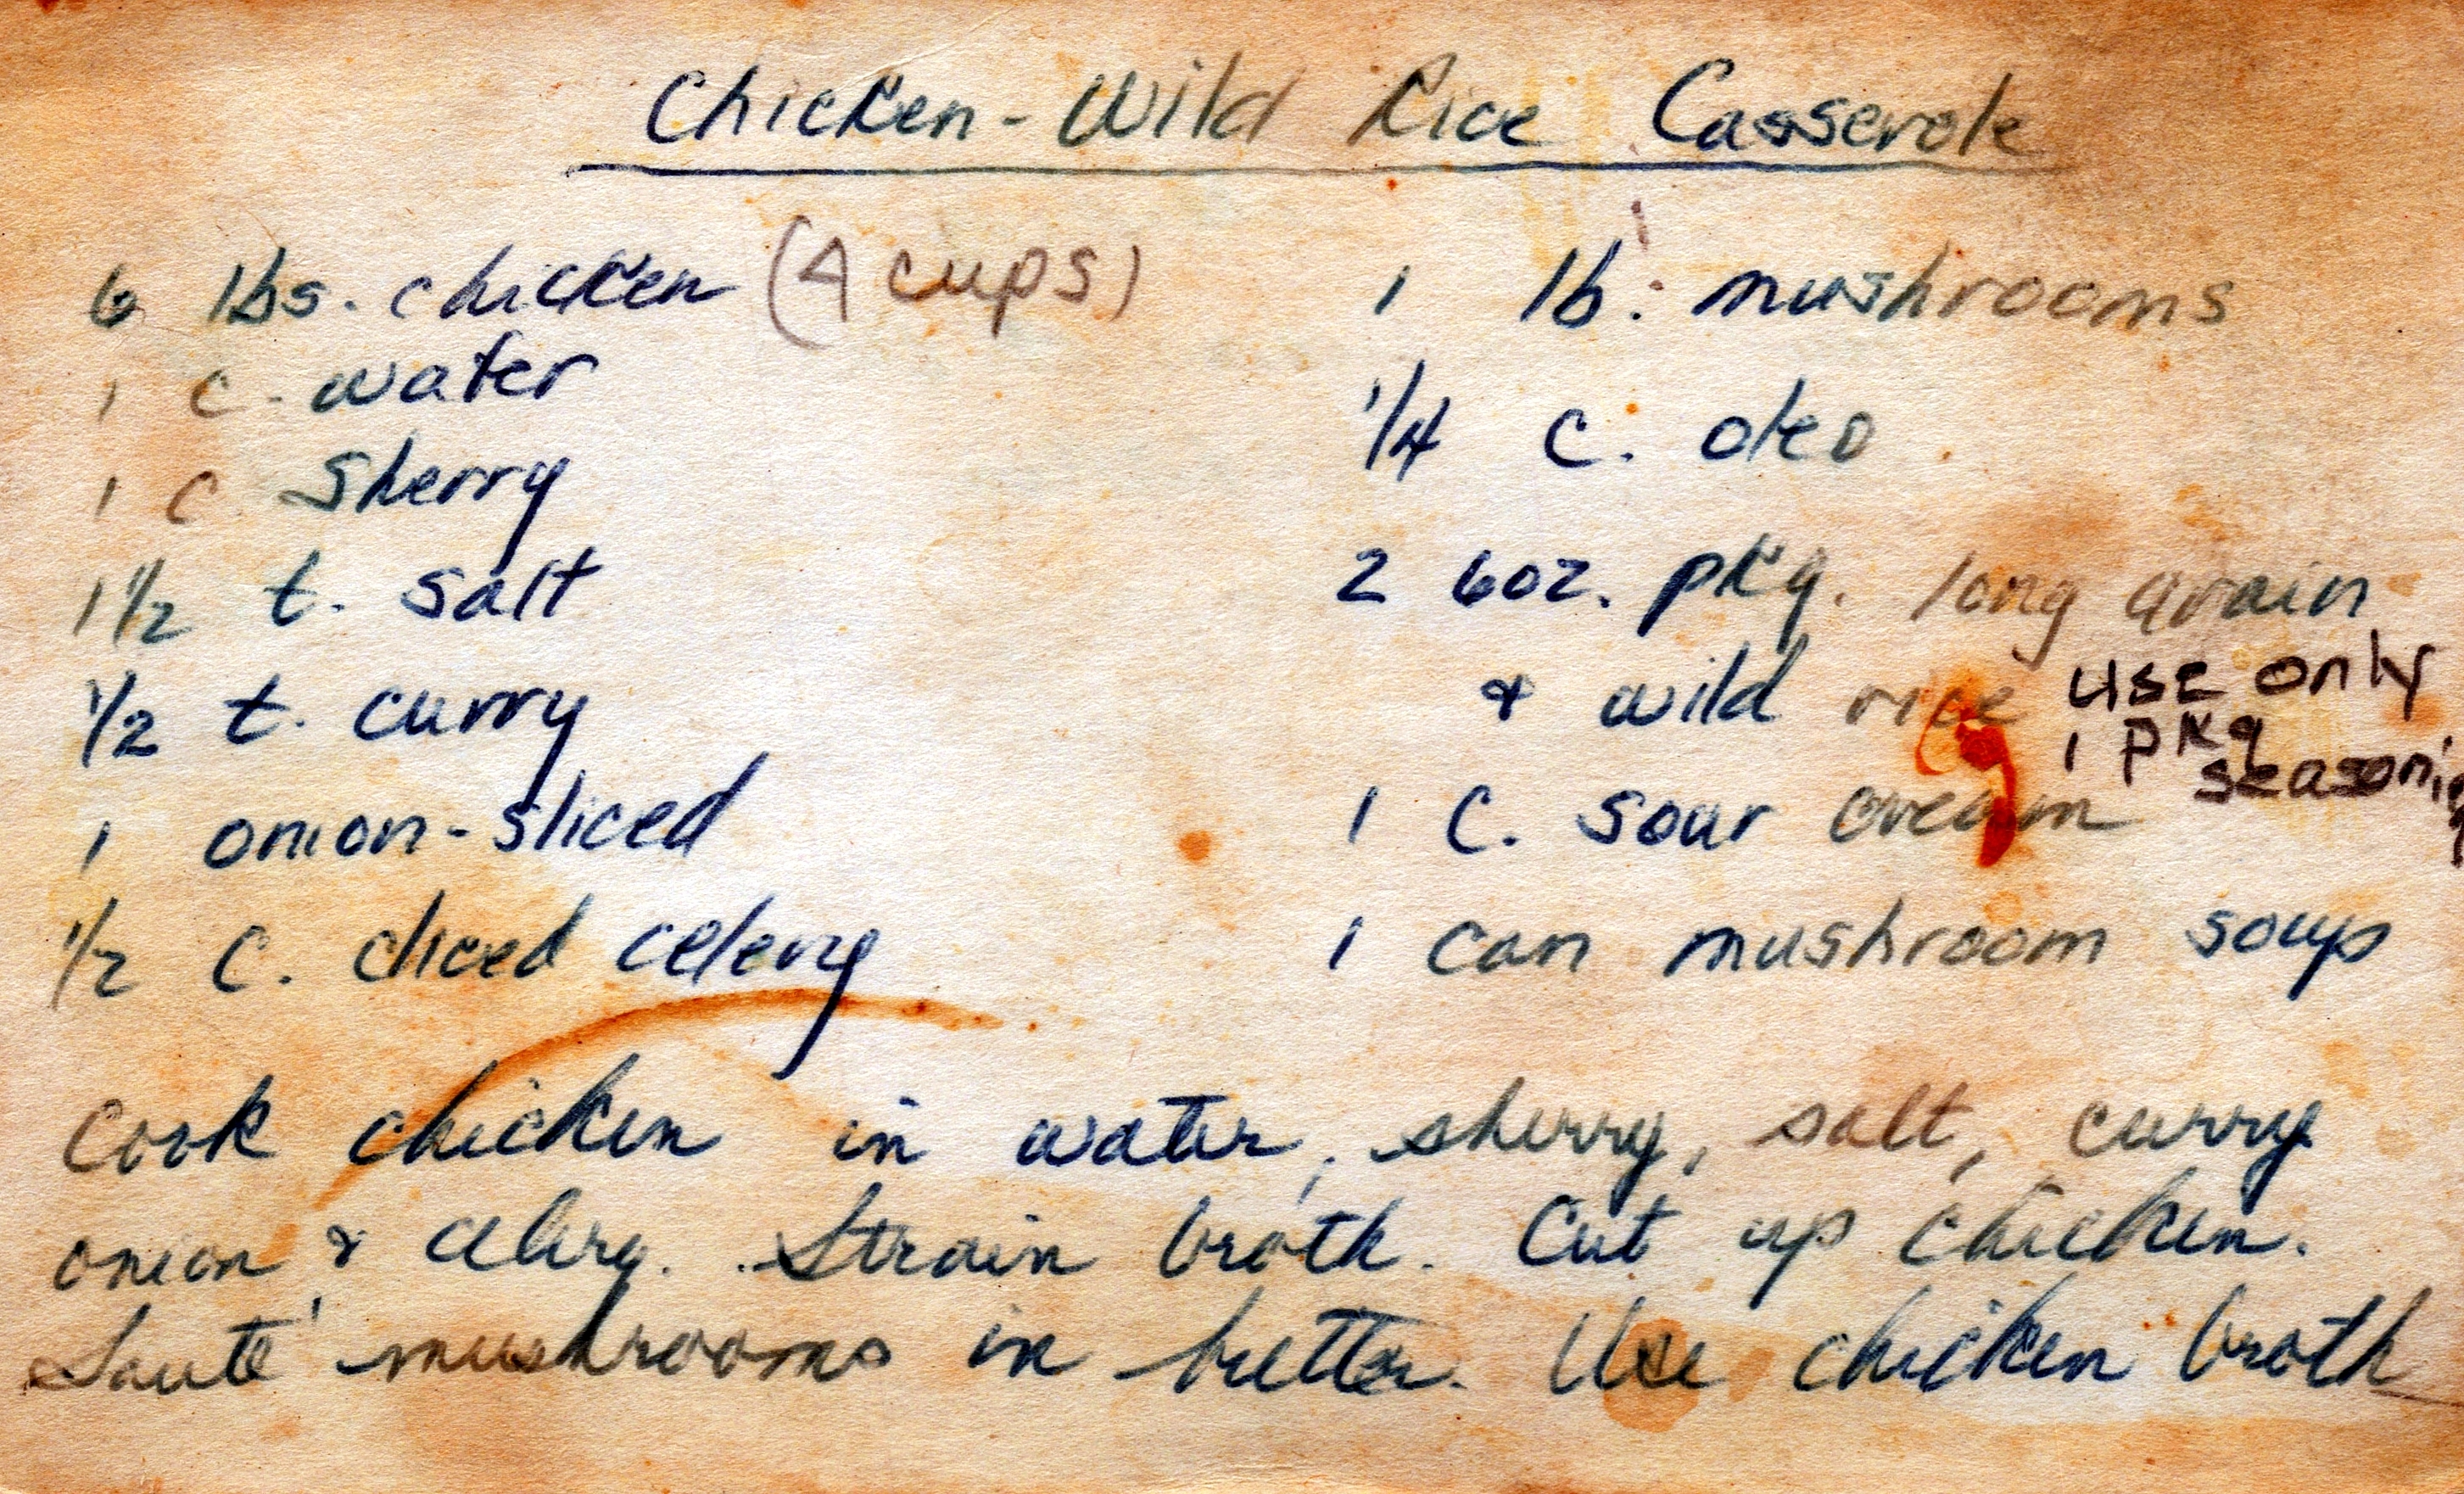 Chicken-Wild Rice Casserole
6 lbs. chicken (4 cups)
1 c. water
1 c sherry
1 1/2 t. salt
1/2 t. curry
1 onion-sliced
1/2 c. diced celery
1 lb. mushrooms
1/4 c. oleo
2 6oz. pkg. long grain
& wild rice use only
1 pkg
seasoning
1 c. sour cream
1 can mushroom soup
Cook chicken in water, sherry, salt, curry
onion & celery. Strain broth. Cut up chicken.
Sauté mushrooms in butter. Use chicken broth